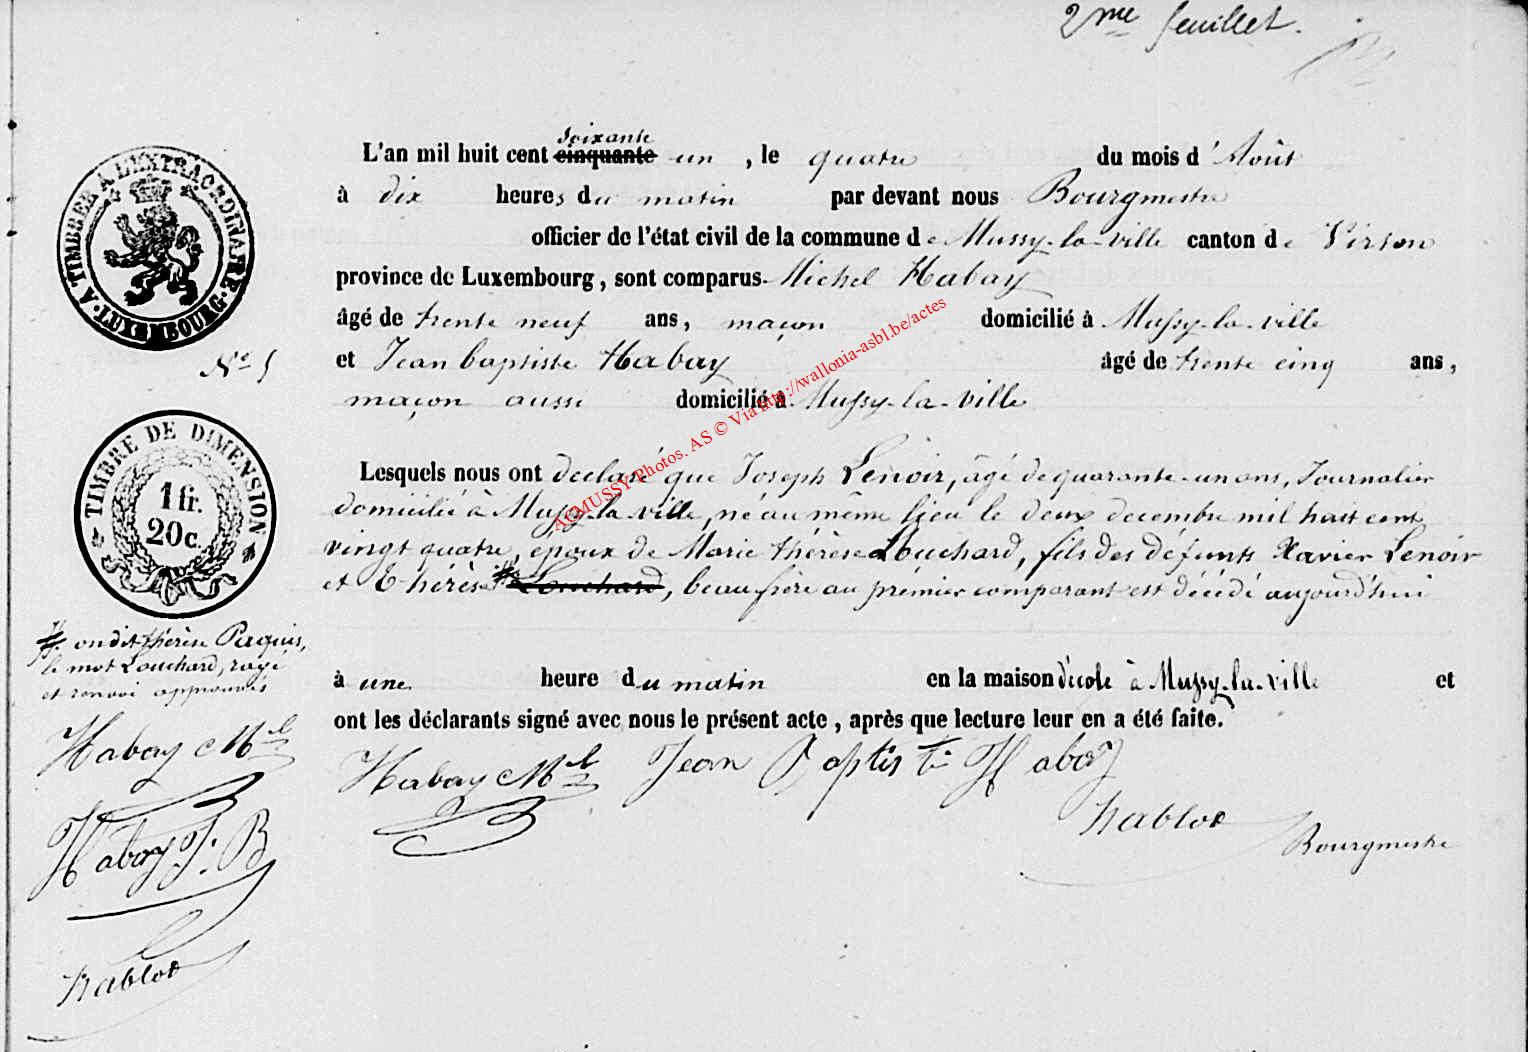 2me feuillet.
L'an mil huit cent cinquante soixante un, le quatre du mois d'Août
à dix heures du matin par devant nous Bourgmestre
officier de l'état civil de la commune de Mussy-la-ville canton de Virton
province de Luxembourg, sont comparus Michel Habay
âgé de trente neuf ans, maçon domicilié à Mussy-la-ville
et Jean baptiste Habay âgé de trente cinq ans,
maçon aussi domicilié à Mussy-la-ville
Lesquels nous ont declaré que Joseph Lenoir, âgé de quarante-un ans, Journalier
domicilié à Mussy-la-ville, né au même lieu le deux decembre mil huit cent
vingt quatre, époux de Marie thérèse Louchard, fils des défunts Xavier Lenoir
et Thérèse Louchard, beau frère au prémier comparant est décédé aujourd'hui
à une heure du matin en la maison d'école à Mussy-la-ville et
ont les déclarants signé avec nous le présent acte, après que lecture leur en a été faite.
Habay Mel Jean Baptiste Habay
Hablot
Bourgmestre
A TIMBRER A L'EXTRAORDINAIRE
LUXEMBOURG
No 5
TIMBRE DE DIMENSION
1 fr.
20 c.
on dit thérèse Paquis,
le mot Louchard, rayé
et renvoi approuvés
Habay Mel
Habay J. B
Hablot
ACMUSSY Photos. AS © Via http://wallonia-asbl.be/actes